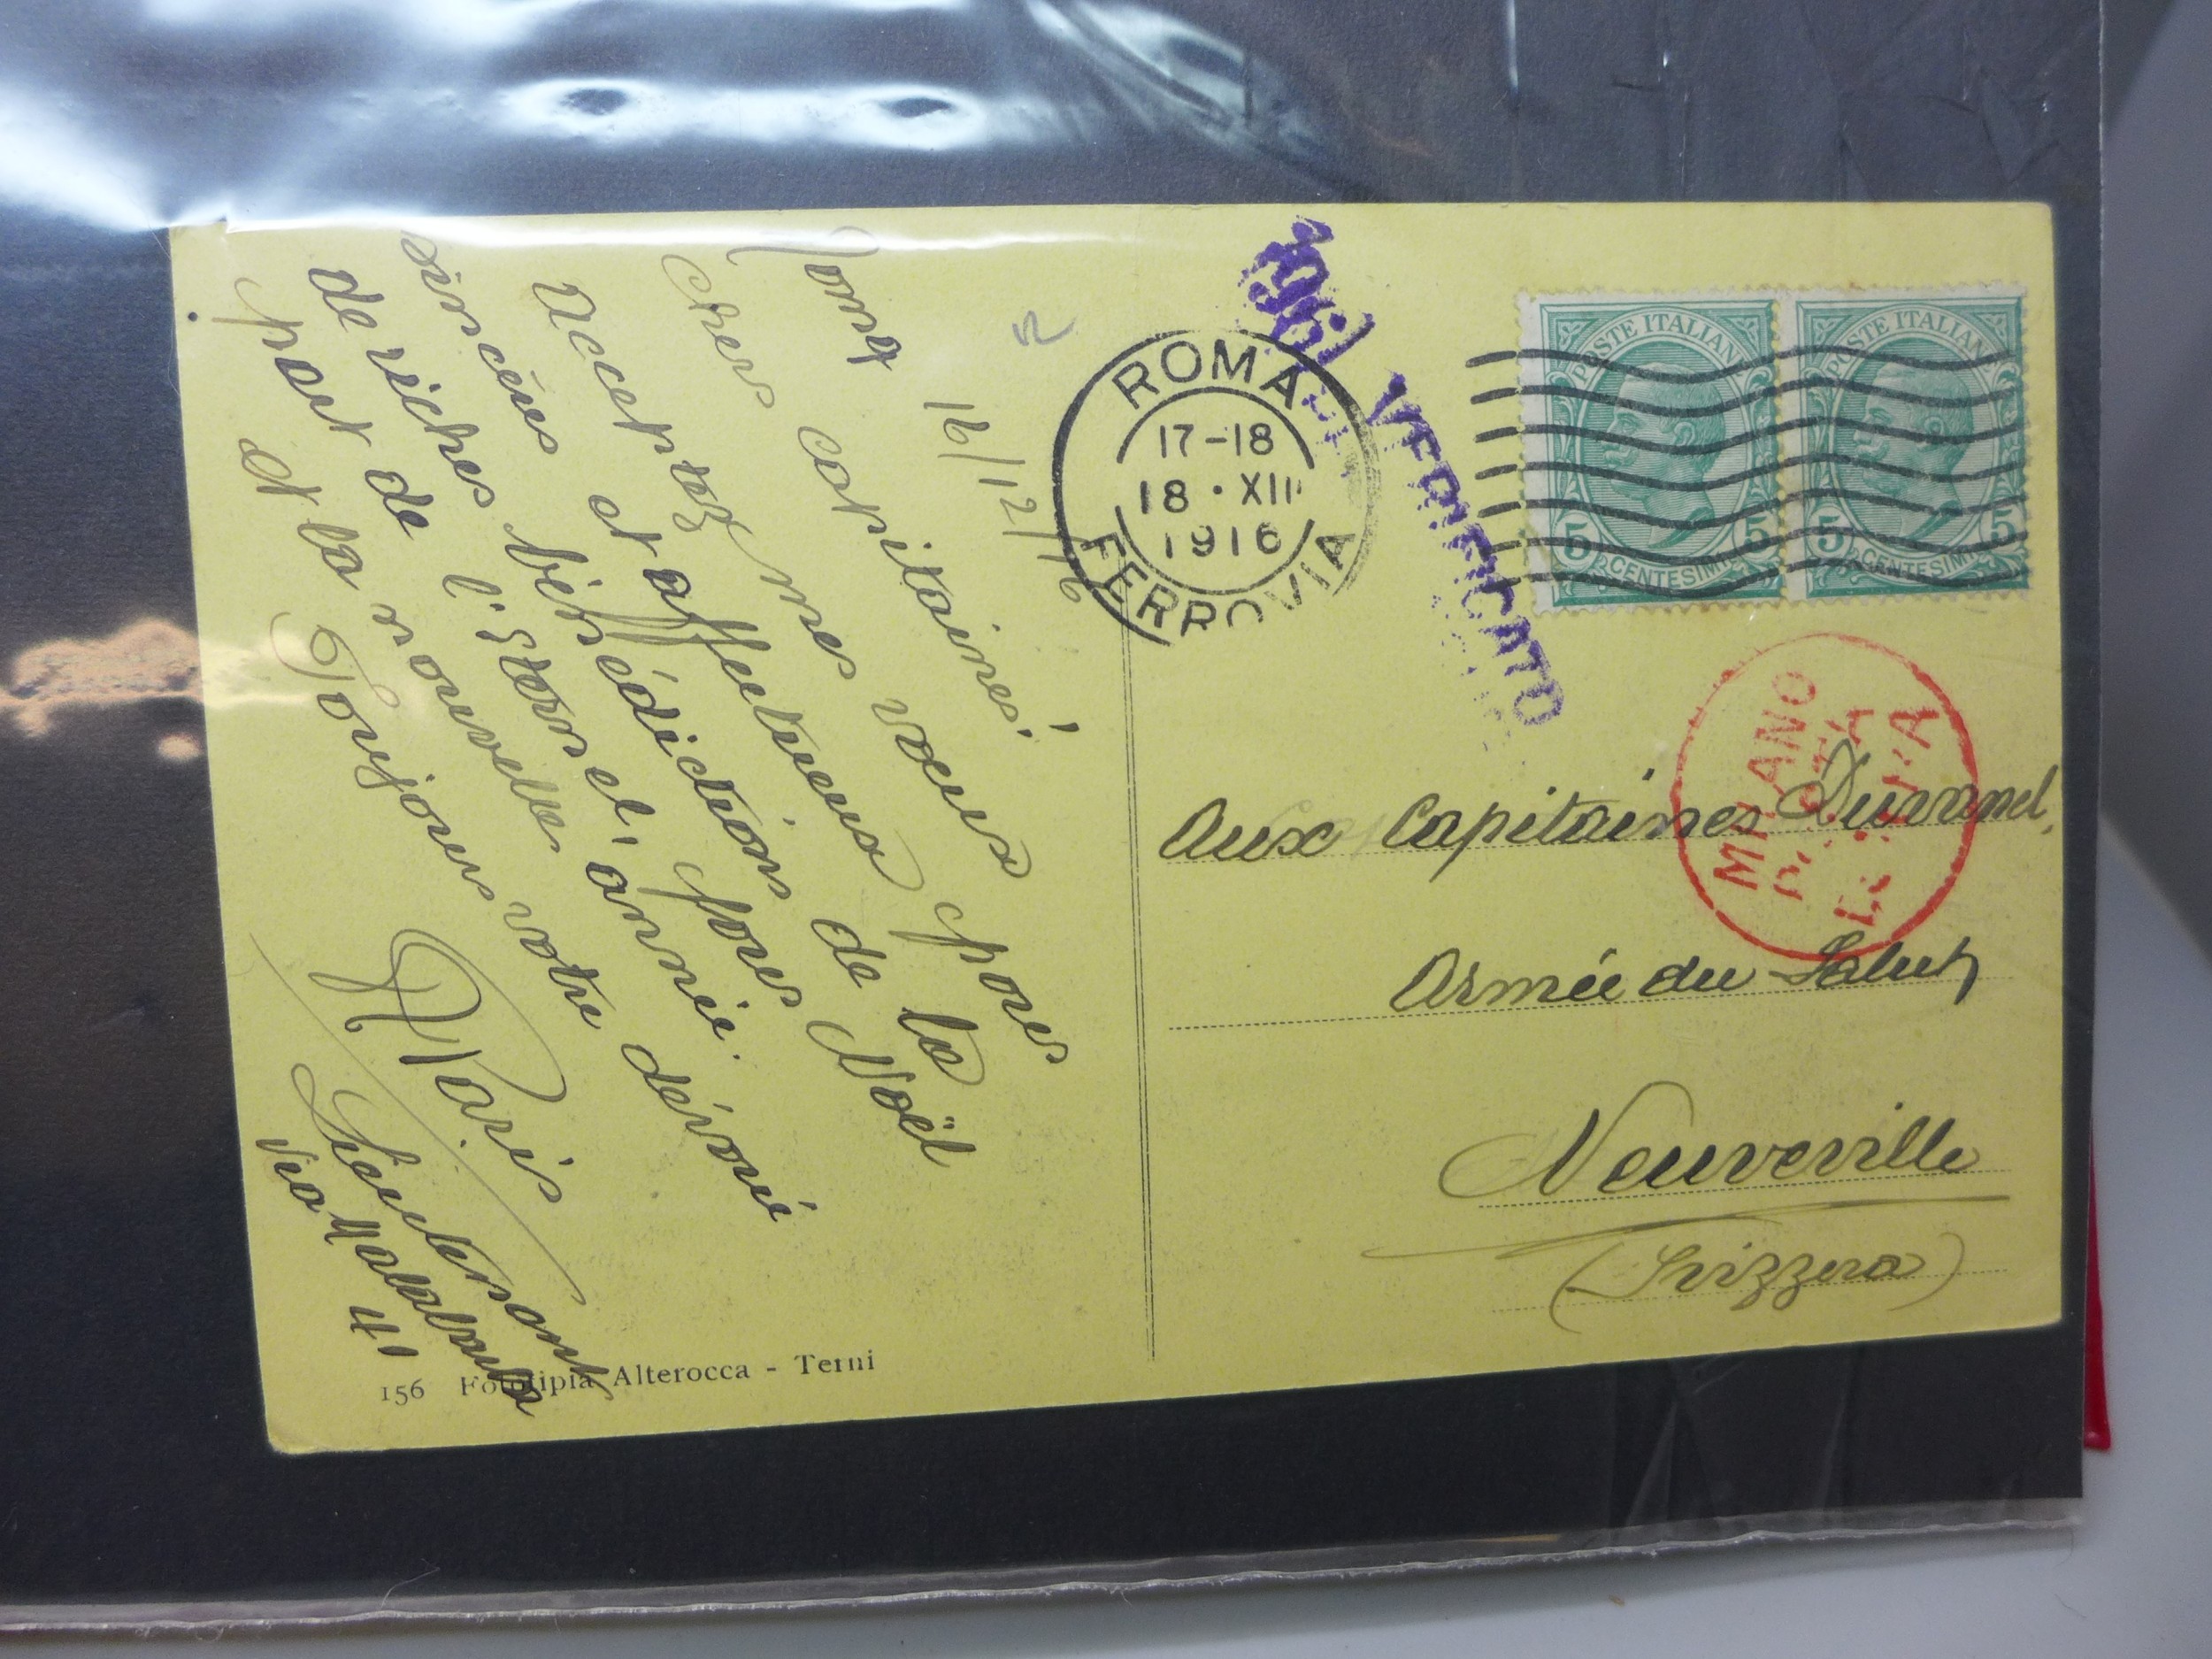 Roma 16/12/16
Chers capitaines!
Acceptez mes voeux pour
sincères et affectueux de la
de riches bénédictions pour Noël
part de l'Eternel, l'année.
et la nouvelle
Toujours votre dévoué
Paris
Lieutenant
Via
41
156 Fototipia Alterocca - Terni
VERIFICATO
ROMA
17-18
18 · XII
1916
FERROVIA
POSTE ITALIANE
5 CENTESIMI 5
POSTE ITALIANE
5 CENTESIMI 5
MILANO
POSTA
Aux Capitaines Durand,
Armée du Salut
Neuveville
(Svizzera)